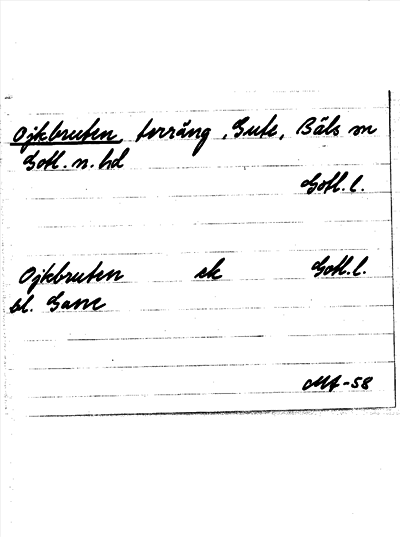 Ojkbruten, terräng, Gute, Bäls sn
Gotl. n. hd
Gotl. l.
Ojkbruten ek Gotl. l.
bl. Gann
MA-58